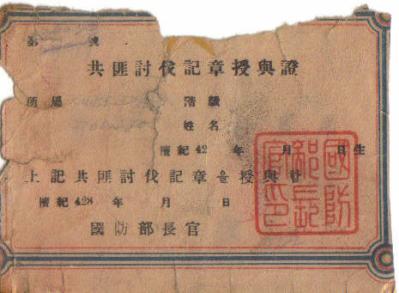 第 號
共匪討伐記章授與證
所屬 階級
姓名
檀紀42 年 月 日生
上記共匪討伐記章을授與함
檀紀428 年 月 日
國防部長官
國防部長官印